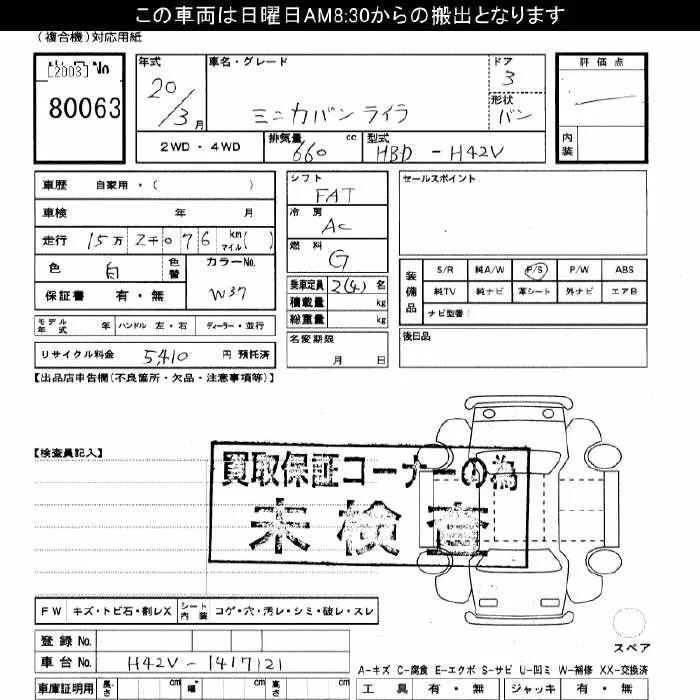 この車両は日曜日AM8:30からの搬出となります
(複合機)対応用紙
[2003] No
80063
年式
20/3月
車名・グレード
ミニカバン ライラ
ドア
3
形状
バン
評価点
内装
2WD・4WD
排気量 660 cc
型式 HBD - H42V
車歴 自家用・( )
車検 年 月
走行 15万 2千0 76 km マイル( )
色 白 色替
カラーNo. W37
保証書 有・無
シフト
FAT
冷房
AC
燃料
G
乗車定員 2(4) 名
積載量 kg
総重量 kg
名変期限
月 日
セールスポイント
装備品
S/R 純A/W P/S P/W ABS
純TV 純ナビ 革シート 外ナビ エアB
ナビ型番:
後日品
モデル年式 年 ハンドル 左・右 ディーラー・並行
リサイクル料金 5,410 円 預託済
【出品店申告欄(不良箇所・欠品・注意事項等)】
【検査員記入】
買取保証コーナーの為
未検査
FW キズ・トビ石・割レX シート内装 コゲ・穴・汚レ・シミ・破レ・スレ
スペア
登録No.
車台No. H42V-1417121
A-キズ C-腐食 E-エクボ S-サビ U-凹ミ W-補修 XX-交換済
車庫証明用 長さ cm 幅 cm 高さ cm
工具 有・無 ジャッキ 有・無